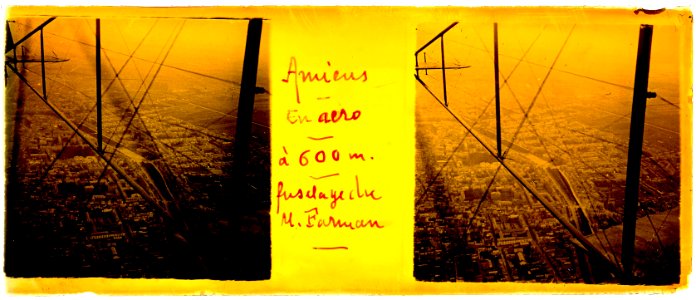 Amiens
En aero
à 600 m.
fuselage du
M. Farman